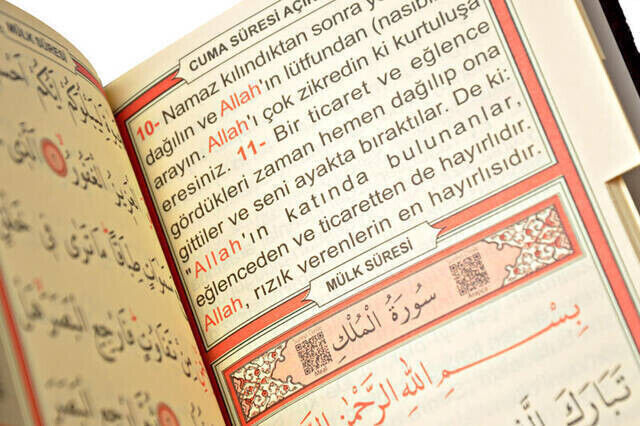 MÜLK SÛRESİ
لِيَبْلُوَكُمْ اَيُّكُمْ
الْعَزِيزُ الْغَفُورُ
طِبَاقًا مَا تَرٰى فِى
مِنْ تَفَاوُتٍ فَارْجِعِ الْبَصَرَ هَلْ
ارْجِعِ الْبَصَرَ
CUMA SÛRESİ
10- Namaz kılındıktan sonra
dağılın ve Allah'ın lütfundan (nasibin
arayın. Allah'ı çok zikredin ki kurtuluşa
eresiniz. 11- Bir ticaret ve eğlence
gördükleri zaman hemen dağılıp ona
gittiler ve seni ayakta bıraktılar. De ki:
"Allah'ın katında bulunanlar,
eğlenceden ve ticaretten de hayırlıdır.
Allah, rızık verenlerin en hayırlısıdır.
MÜLK SÛRESİ
سُورَةُ الْمُلْكِ
بِسْمِ اللّٰهِ الرَّحْمٰنِ
تَبَارَكَ